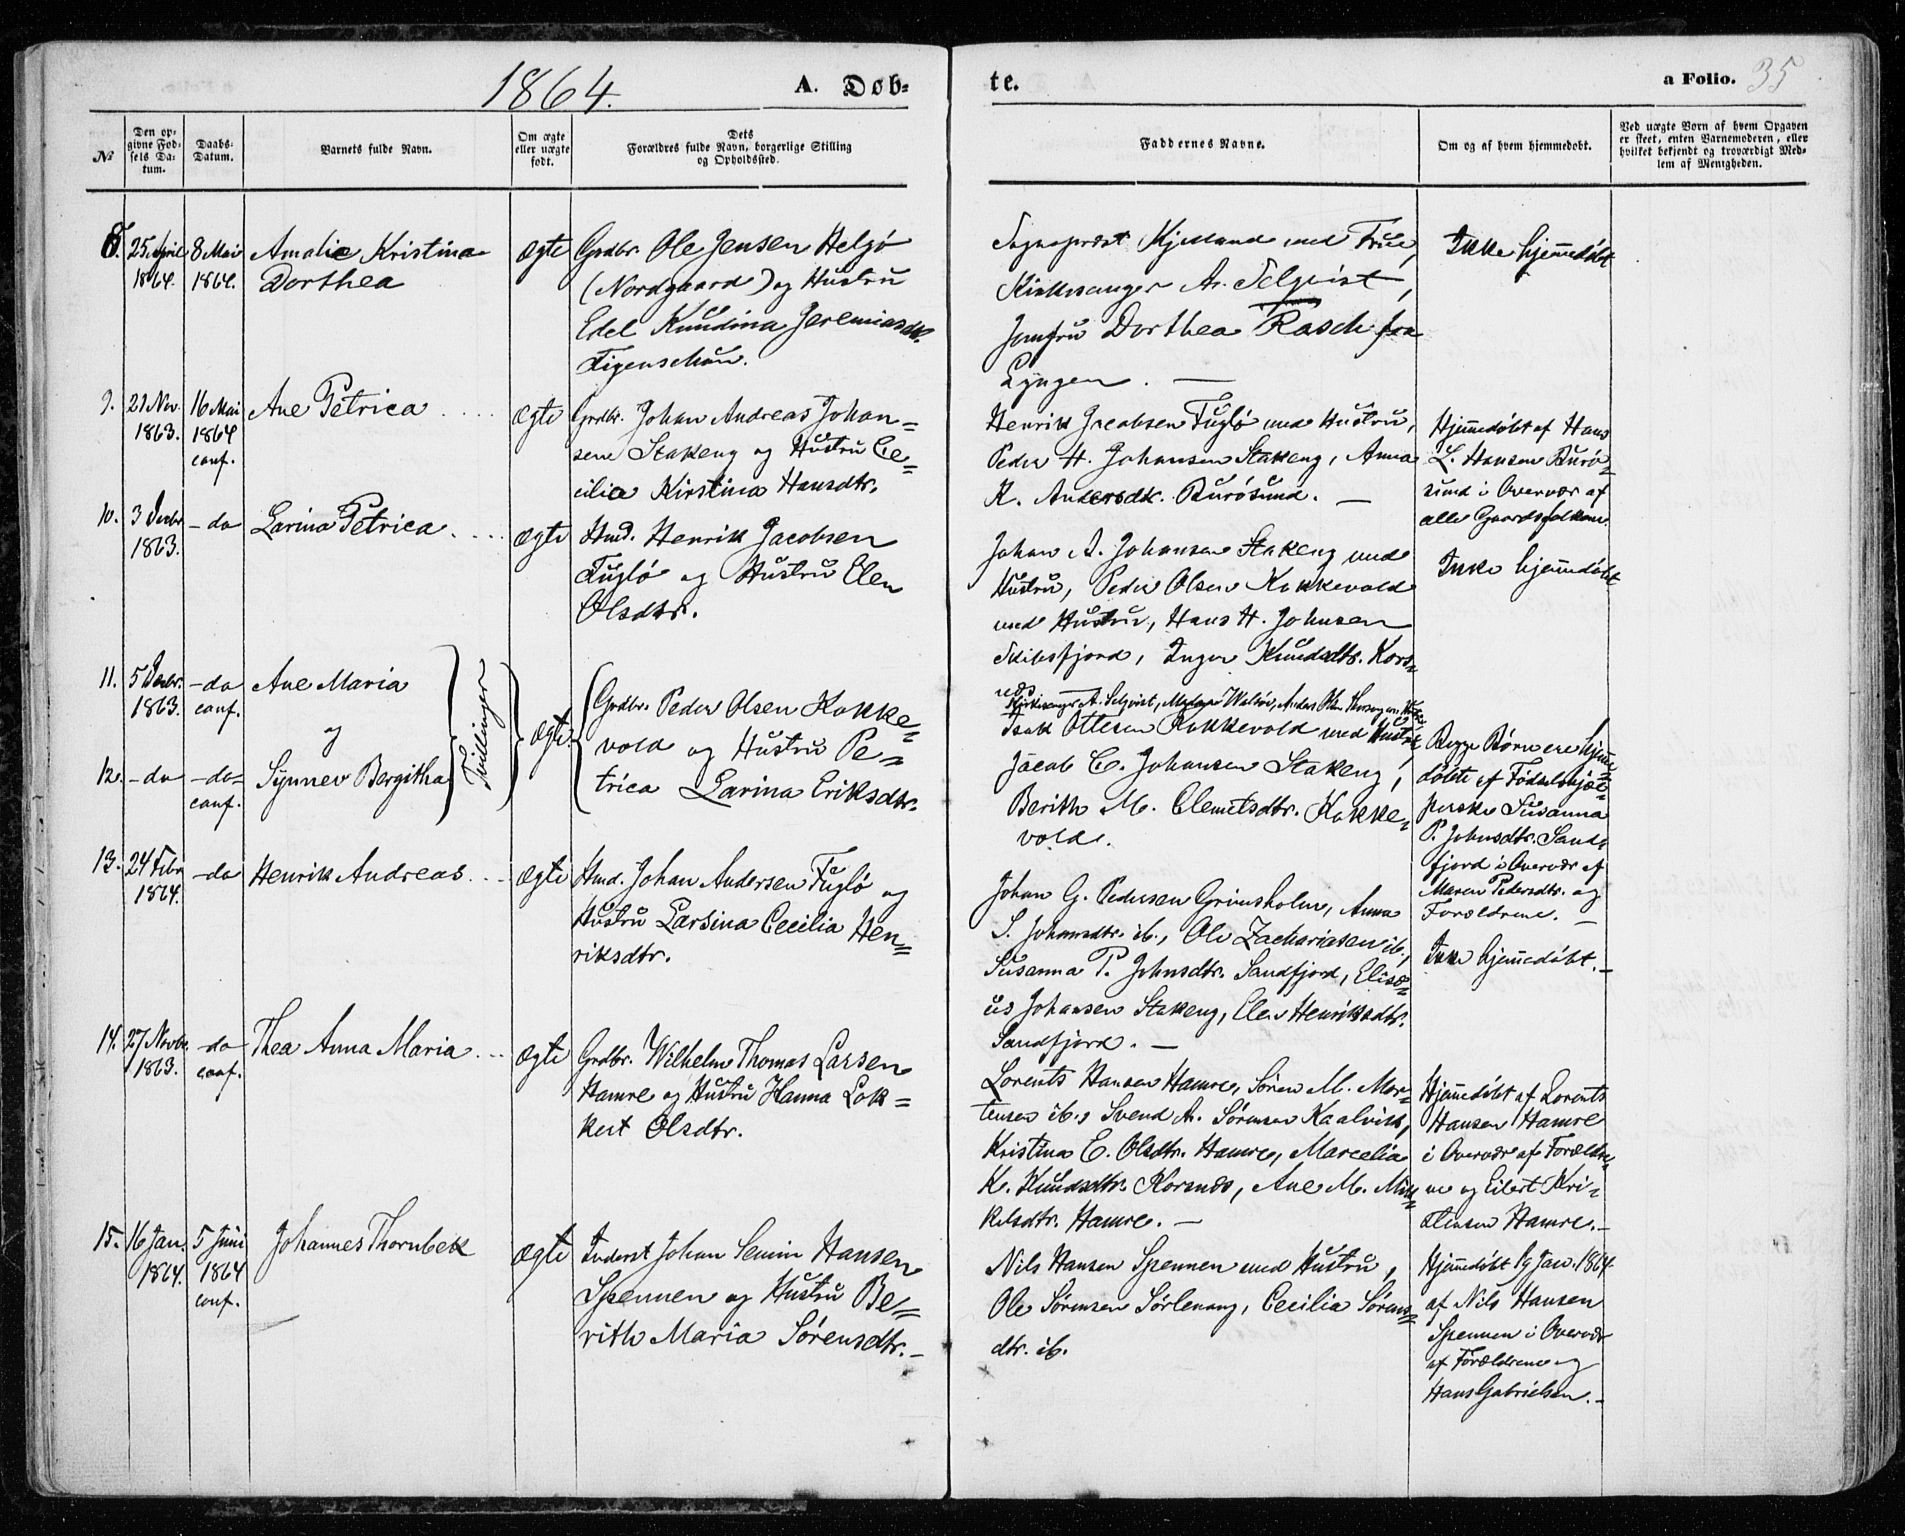 1864.
A. Døb-
te.
a Folio. 35
№
Den op-
givne Fød-
sels Da-
tum.
Daabs-
Datum.
Barnets fulde Navn.
Om ægte
eller uægte
født.
Dets
Forældres fulde Navn, borgerlige Stilling
og Opholdssted.
Faddernes Navne.
Om og af hvem hjemmedøbt.
Ved uægte Børn af hvem Opgaven
er skeet, enten Barnemoderen, eller
hvilket bekjendt og troværdigt Med-
lem af Menigheden.
8.
25 April
1864.
8 Mai
1864.
Amalie Kristina
Dorthea
Ægte
Grdbr. Ole Jensen Helgø
(Nordgaard) og Hustru
Edel Knudina Jeremiasdtr.
Figenschau.
Sognepræst Kjelland med Frue,
Kirkesanger A. Selqvist,
Jomfru Dorthea Rasch fra
Lyngen. —
Ikke hjemmedøbt
9.
21 Nov.
1863.
16 Mai
1864
conf.
Ane Petrica
ægte
Grdbr. Johan Andreas Johan=
sen Stakeng og Hustru Ce=
cilia Kirstina Hansdtr.
Henrik Jacobsen Fuglø med Hustru,
Peder H. Johansen Stakeng, Anna
K. Andersdtr. Burøsund. —
Hjemmedøbt af Hans
L. Hansen Burø=
sund i Overvær af
alle Gaardsfolkene
10.
3 Decbr
1863.
- do
Larina Petrica
ægte
Hmd. Henrik Jacobsen
Fuglø og Hustru Elen
Olsdtr.
Johan A. Johansen Stakeng med
Hustru, Peder Olsen Kokkevold
med Hustru, Hans H. Johnsen
Skibsfjord, Inger Knudsdtr. Kors=
næs —
Ikke hjemmedøbt
11.
5 Decbr.
1863.
- do
conf.
Ane Maria
og
12.
- do
- do-
conf.
Synnev Bergitha
Tvillinger
Ægte
Grdbr. Peder Olsen Kokke=
vold og Hustru Pe=
trica Larina Eriksdtr.
Kirkesanger A. Selqvist,
Isak Ottesen Kokkevold med Hustru,
Jacob C. Johansen Stakeng,
Berith M. Clemetsdtr. Kokke=
vold.
Begge Børnene hjem=
døbte af Fødselshjæl=
perske Susanna
P. Johnsdtr. Sand=
fjord i Overvær af
Maren Pedersdtr. og
Forældrene. —
13.
24 Febr
1864.
-do
Henrik Andreas
ægte
Hmd. Johan Andersen Fuglø og
Hustru Larsina Cecilia Hen=
riksdtr.
Johan G. Pedersen Grimsholm, Anna
S. Johansdtr. ib., Ole Zachariasen ib.,
Susanna P. Johnsdtr. Sandfjord, Elisæ=
us Johansen Stakeng, Elen Henriksdtr.
Sandfjord. —
Ikke hjemmedøbt. —
14.
27 Novbr.
1863.
-do
conf.
Thea Anna Maria
ægte
Grdbr. Wilhelm Thomas Larsen
Hamre og Hustru Hanna Lok=
kert Olsdtr.
Lorents Hansen Hamre, Søren M. Mor=
tensen ib., Svend A. Sørensen Kaalvik,
Kristina E. Olsdtr. Hamre, Marcelia
K. Knudsdtr. Korsnæs, Ane M. Mik=
kelsdtr. Hamre. —
Hjemmedøbt af Lorents
Hansen Hamre
i Overvær af Forældre=
ne og Eilert Kri=
stensen Hamre. —
15.
16 Jan.
1864.
5 Juni
1864
conf.
Johannes Thornbek
ægte
Inderst Johan Hansen
Spennen og Hustru Be=
rith Maria Sørensdtr. —
Nils Hansen Spennen med Hustru,
Ole Sørensen Sørlenang, Cecilia Sørens=
dtr. ib.
Hjemmedøbt 19 Jan. 1864
af Nils Hansen
Spennen i Overvær
af Forældrene og
Hans Gabrielsen. —